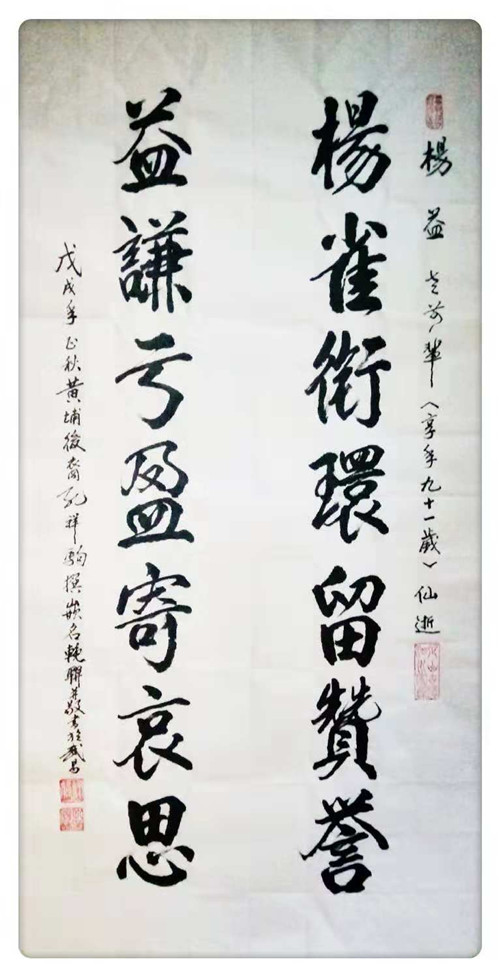 楊益老前輩（享年九十一歲）仙逝
楊雀銜環留贊譽
益謙亏盈寄哀思
戊戌年正秋黃埔後裔孔祥駒撰嵌名輓聯并敬書於武昌